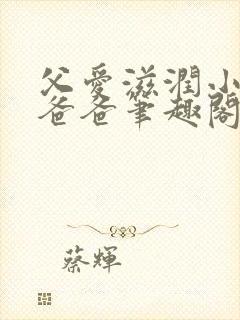 父愛滋潤小
爸爸筆趣閣
蔡輝